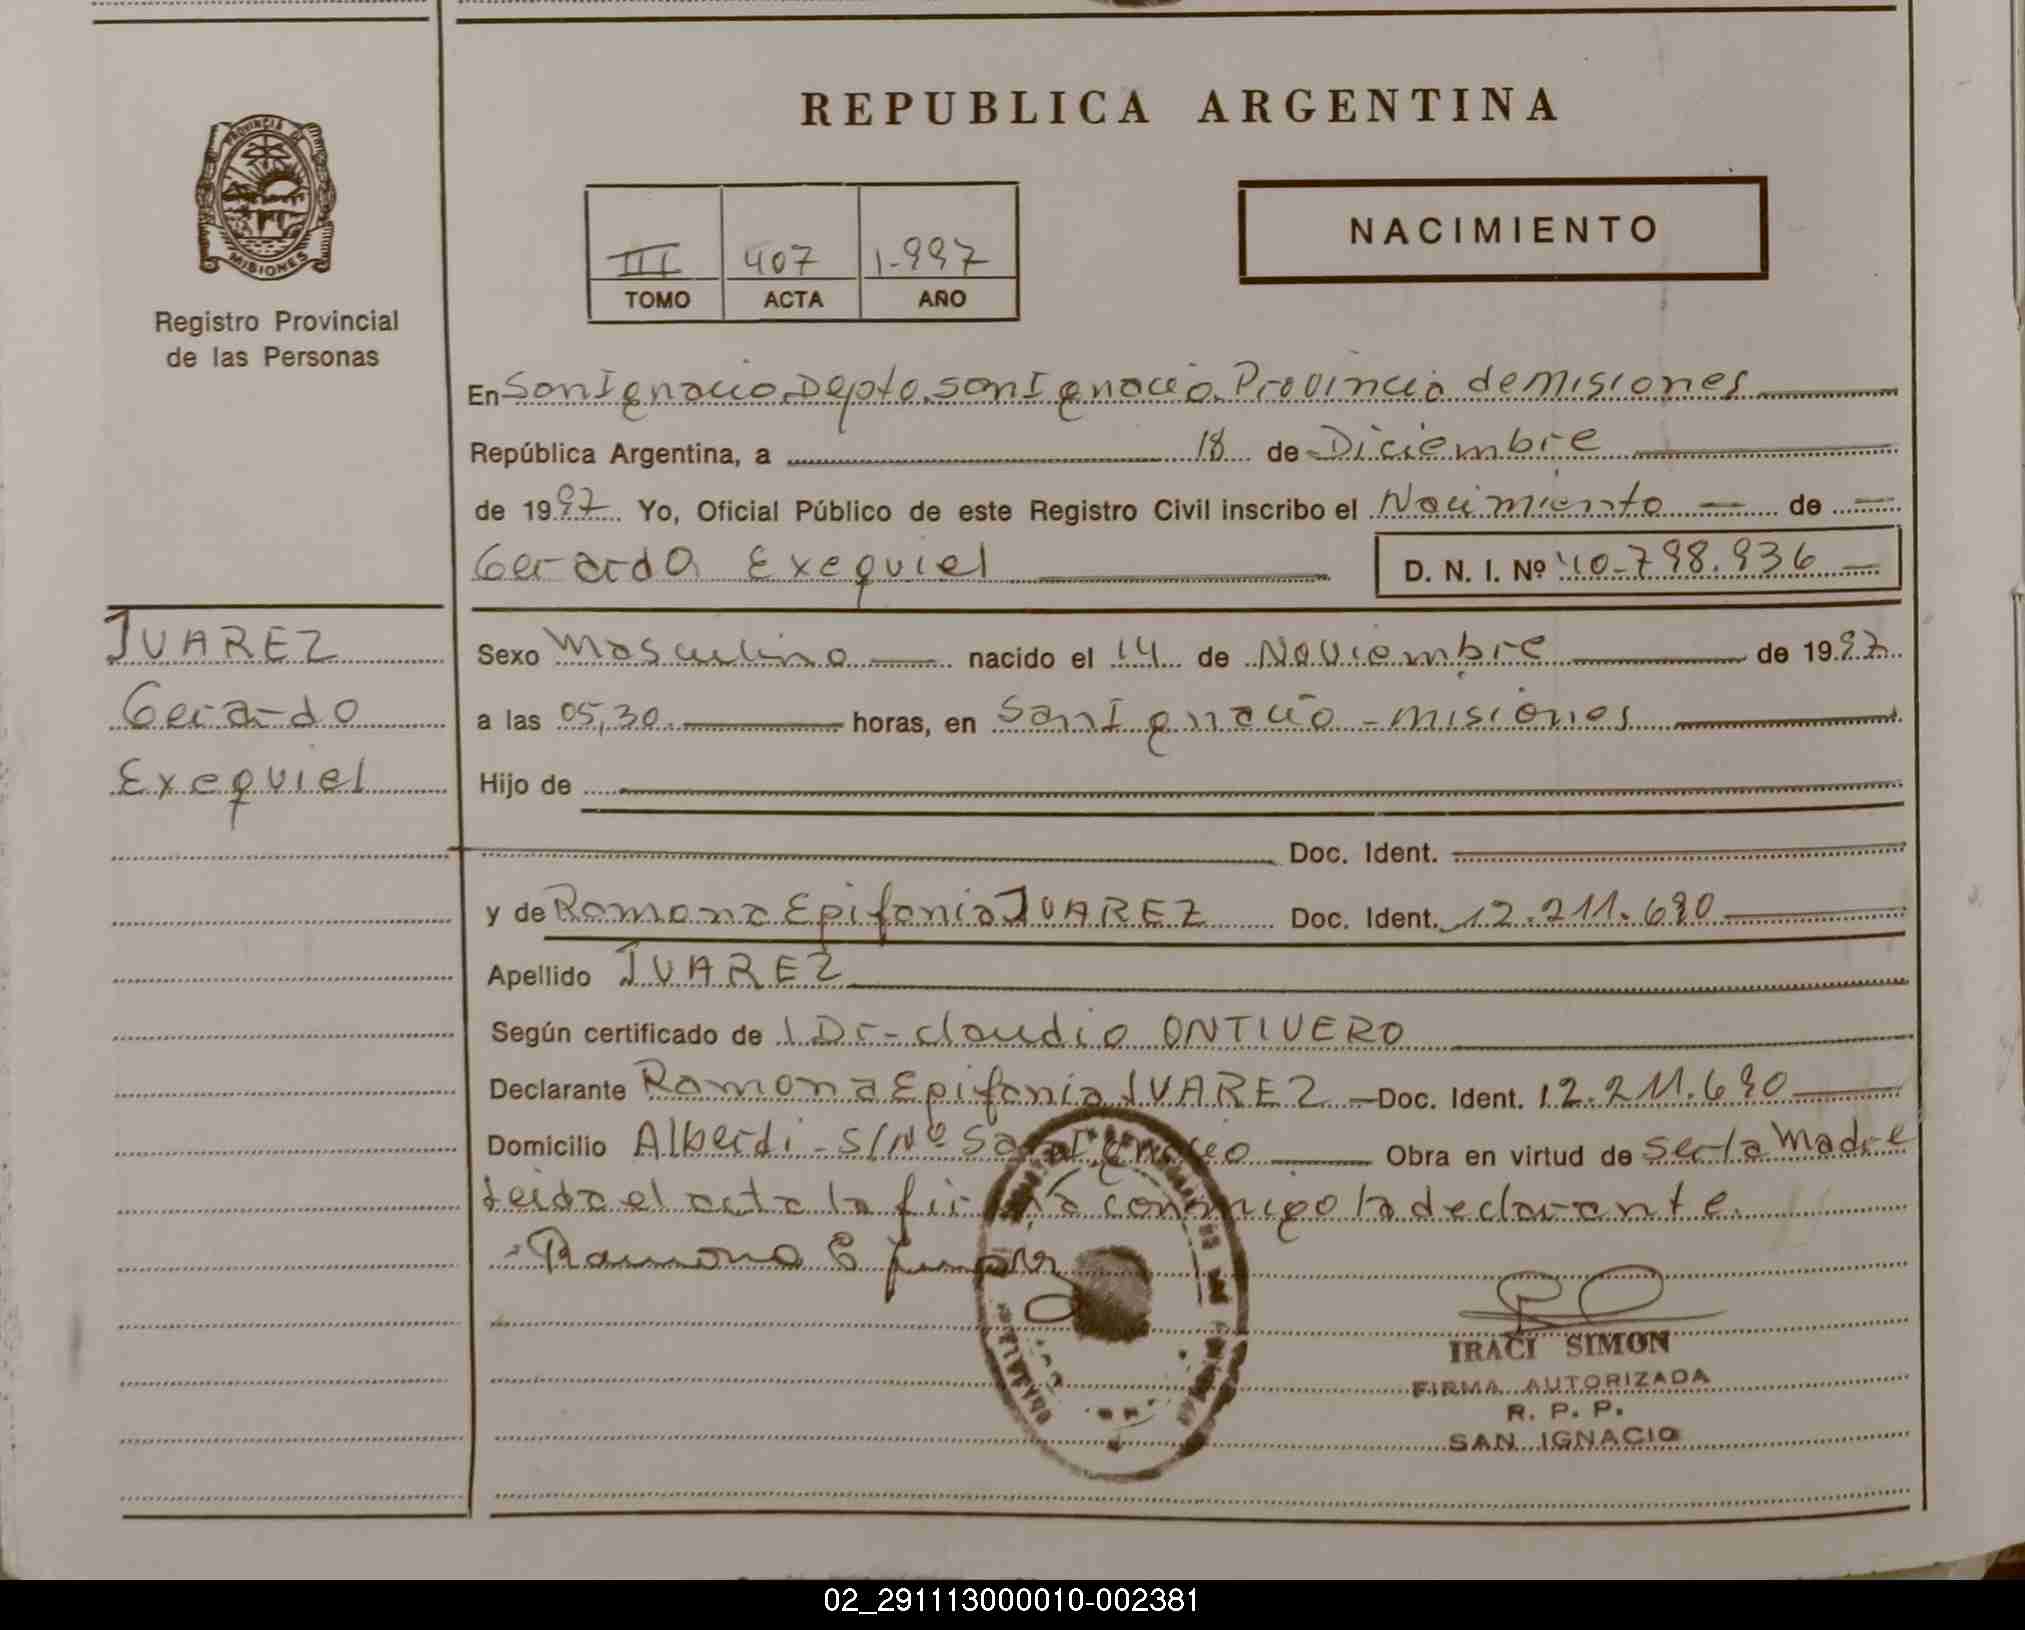 REPUBLICA ARGENTINA
PROVINCIA DE
MISIONES
Registro Provincial
de las Personas
III 407 1-997
TOMO ACTA AÑO
NACIMIENTO
En San Ignacio, Depto. san Ignacio, Provincia de misiones
República Argentina, a 18 de Diciembre
de 1997 Yo, Oficial Público de este Registro Civil inscribo el Nacimiento — de
Gerardo Exequiel D. N. I. Nº 40-798.936
JUAREZ
Gerardo
Exequiel
Sexo Masculino nacido el 14 de Noviembre de 1997
a las 05,30 horas, en San Ignacio - misiones
Hijo de
Doc. Ident.
y de Ramona Epifania JUAREZ Doc. Ident. 12.211.690
Apellido JUAREZ
Según certificado de l Dr- claudio ONTIVERO
Declarante Ramona Epifania JUAREZ — Doc. Ident. 12.211.690
Domicilio Alberdi - S/Nº San Ignacio Obra en virtud de ser la Madre
Leida el acta la firma conmigo la declarante.
Ramona E
IRACI SIMON
FIRMA AUTORIZADA
R. P. P.
SAN IGNACIO
02_291113000010-002381